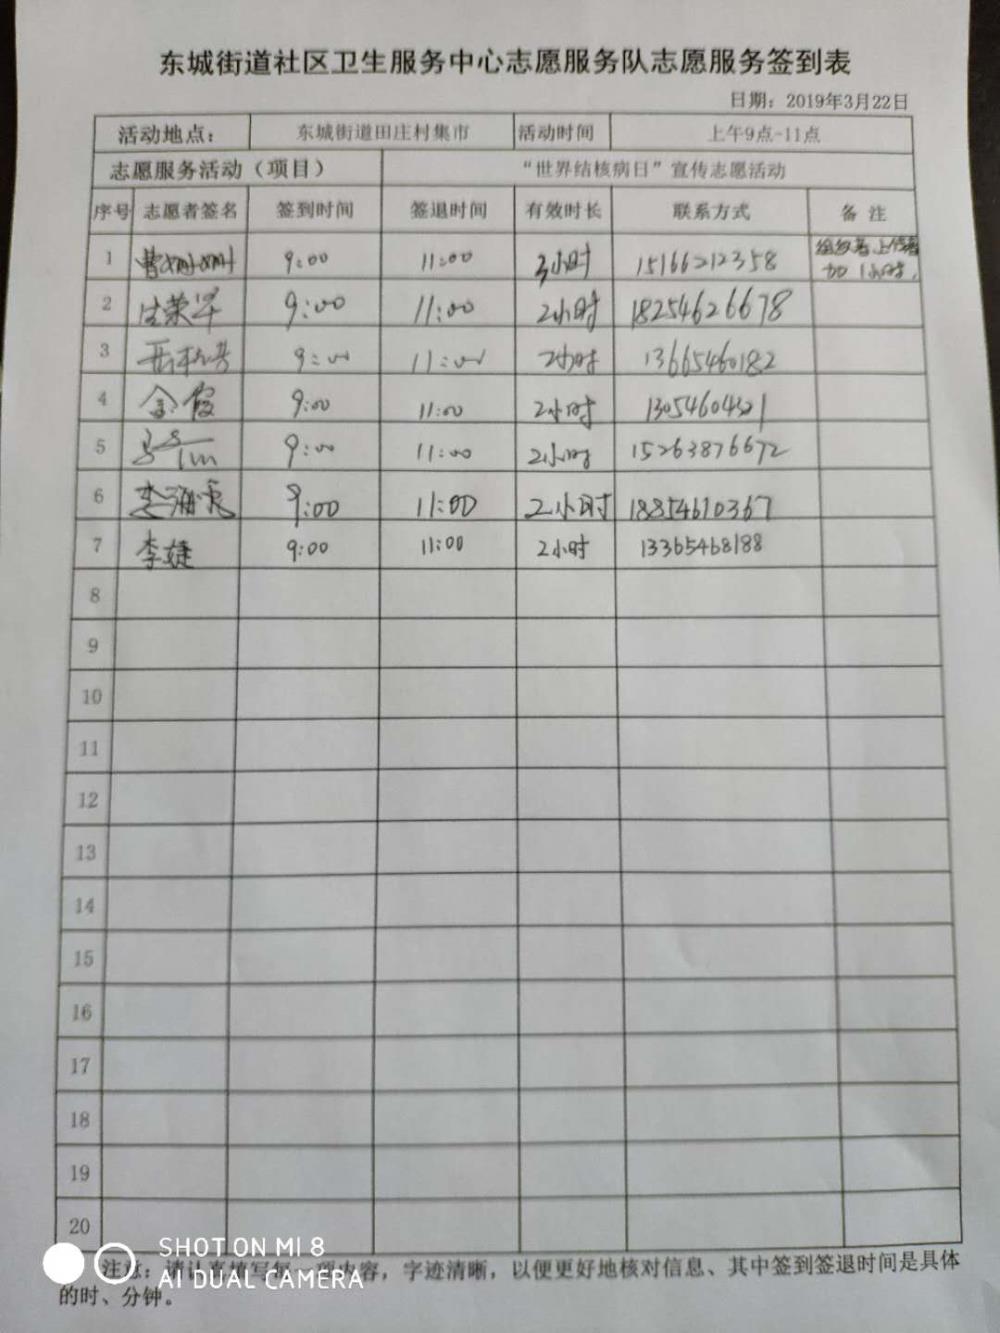 东城街道社区卫生服务中心志愿服务队志愿服务签到表
日期：2019年3月22日
活动地点： 东城街道田庄村集市 活动时间 上午9点-11点
志愿服务活动（项目） “世界结核病日”宣传志愿活动
序号 志愿者签名 签到时间 签退时间 有效时长 联系方式 备注
1 曹姗姗 9:00 11:00 3小时 15166212358 组织者、上传者
加1小时。
2 9:00 11:00 2小时 18254626678
3 9:00 11:00 2小时 13665460182
4 金霞 9:00 11:00 2小时
5 9:00 11:00 2小时 15263876672
6 李海 9:00 11:00 2小时 18854610367
7 李婕 9:00 11:00 2小时 13365468188
8
9
10
11
12
13
14
15
16
17
18
19
20
注意：请认真填写每一项内容，字迹清晰，以便更好地核对信息、其中签到签退时间是具体
的时、分钟。
SHOT ON MI 8
AI DUAL CAMERA